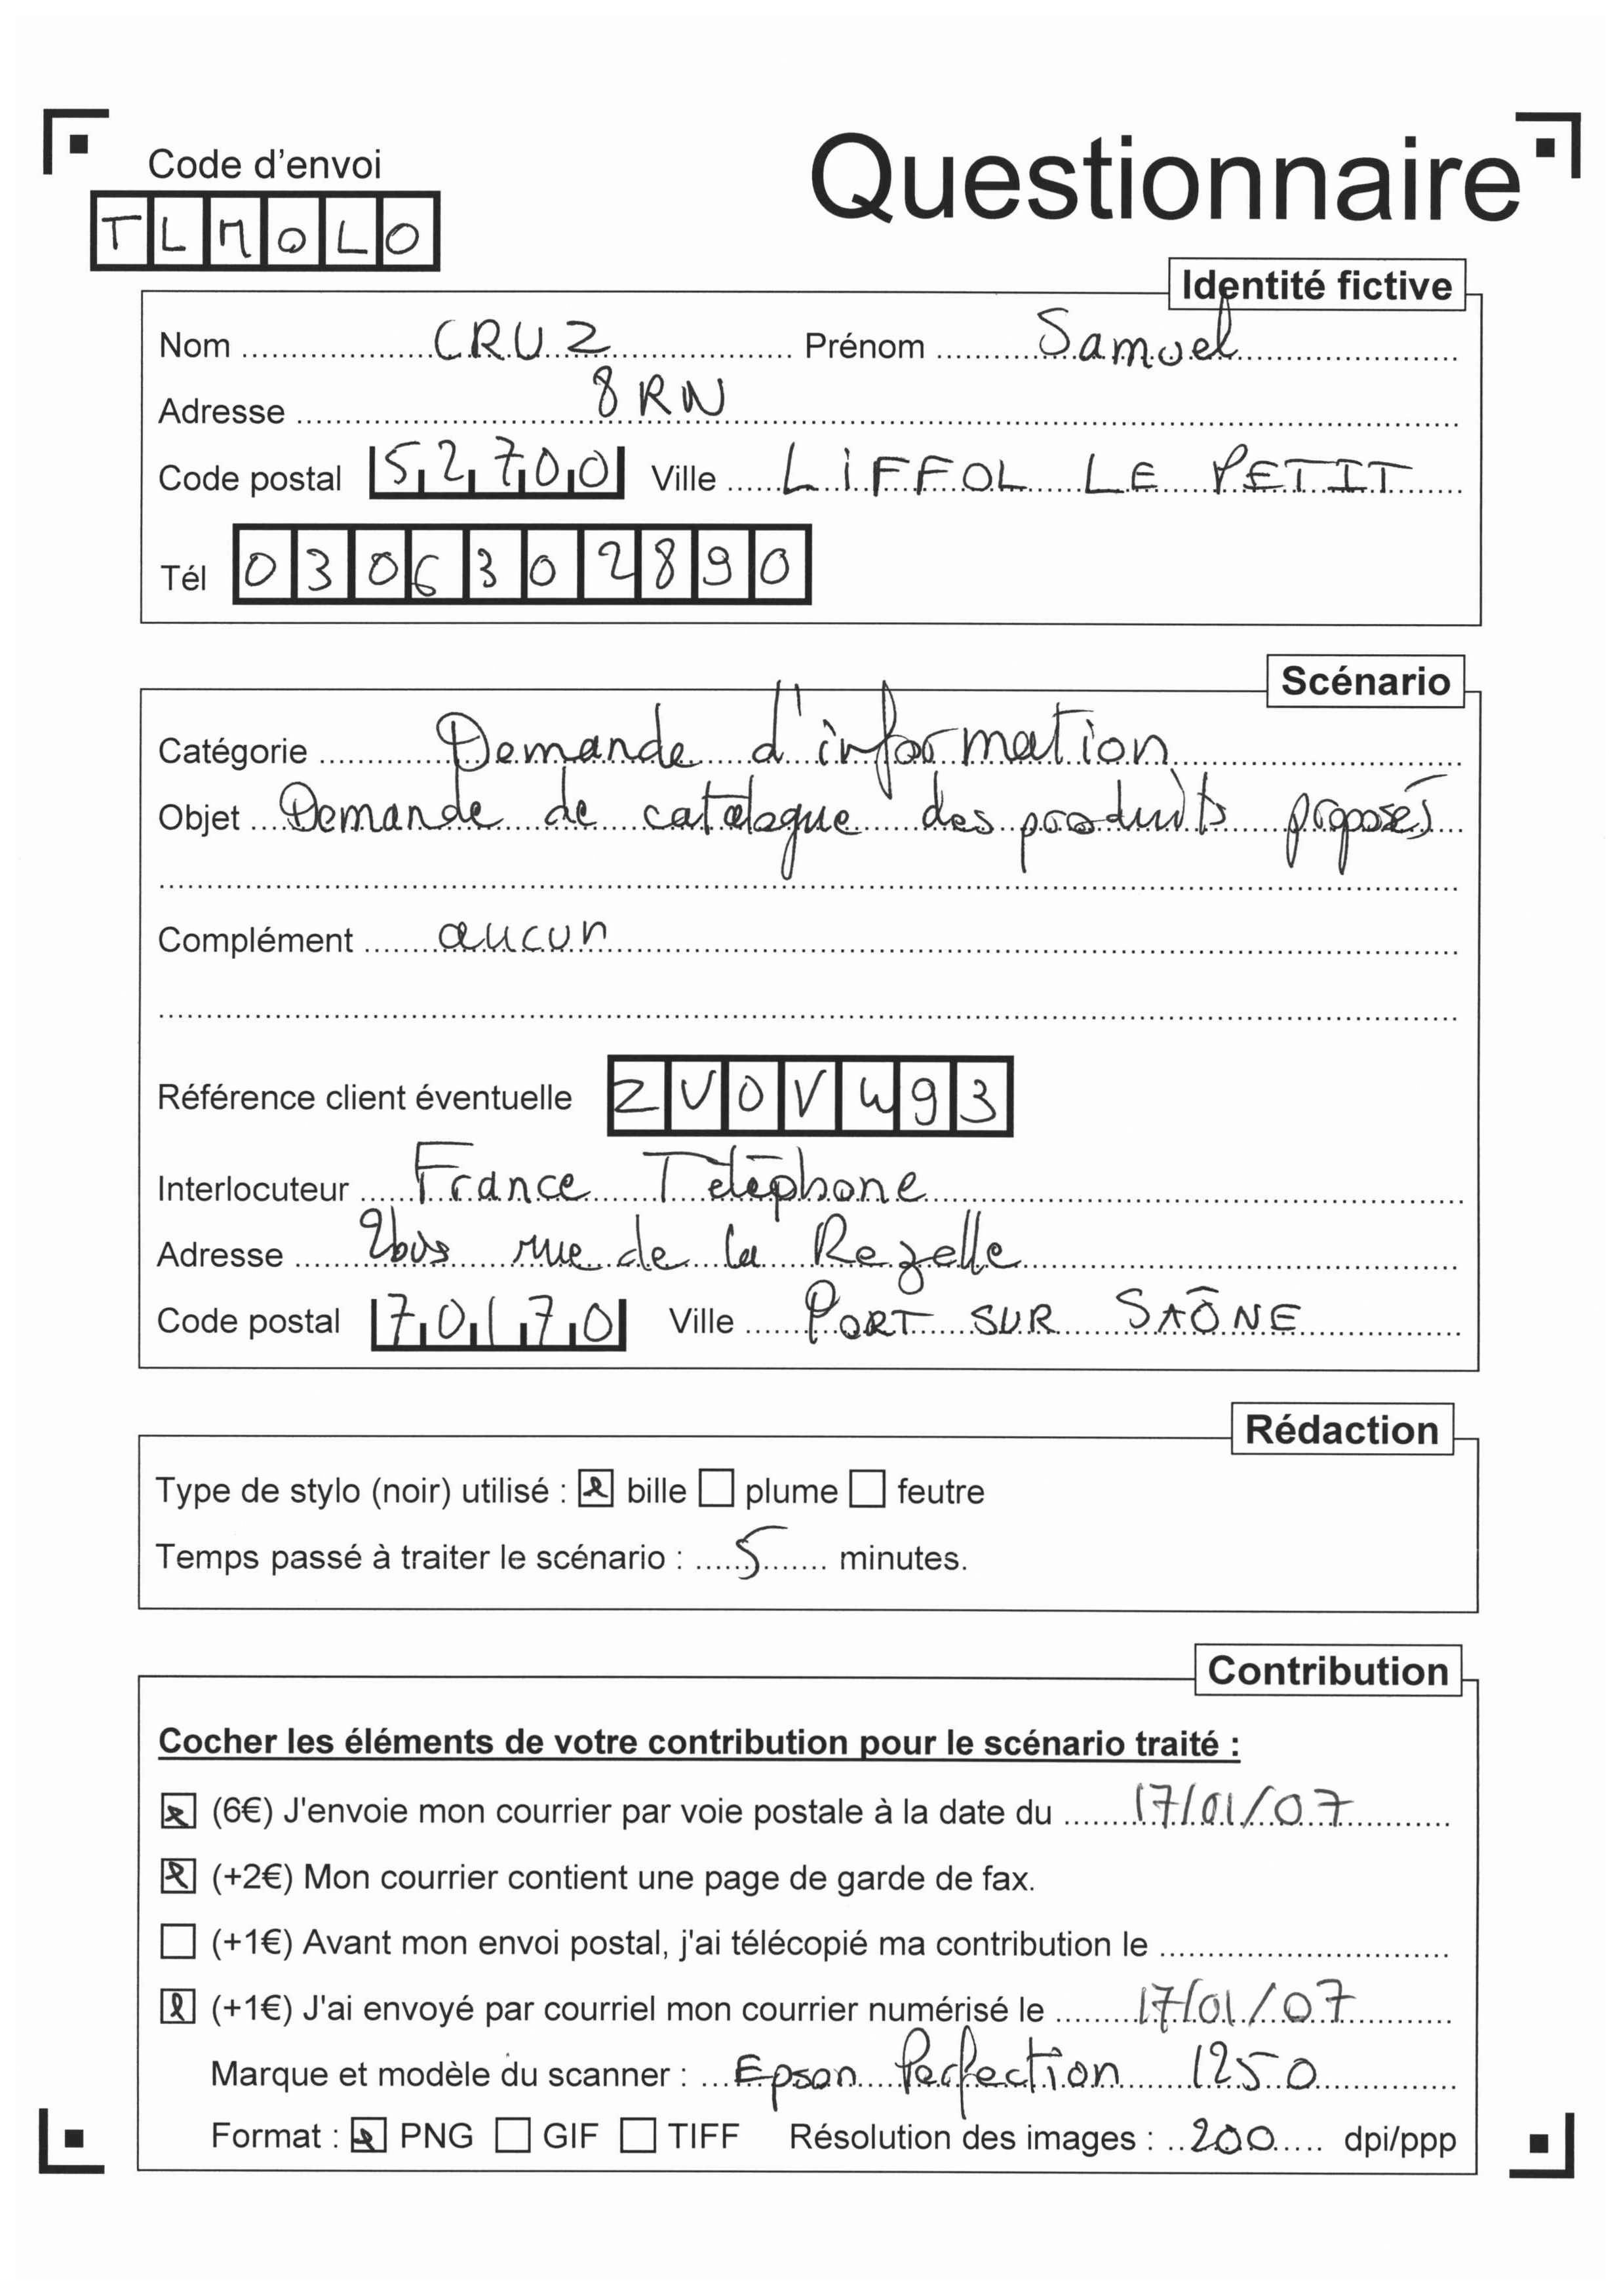 Code d'envoi
Questionnaire
TLMOLO
Identité fictive
Nom CRUZ Prénom Samuel
Adresse 8 RN
Code postal 52700 Ville LIFFOL LE PETIT
Tél 0306302890
Scénario
Catégorie Demande d'information
Objet Demande de catalogue des produits proposés
Complément aucun
Référence client éventuelle ZUOVW93
Interlocuteur France Téléphone
Adresse 2bis rue de la Rezelle
Code postal 70170 Ville PORT SUR SAÔNE
Rédaction
Type de stylo (noir) utilisé : bille plume feutre
Temps passé à traiter le scénario : 5 minutes.
Contribution
Cocher les éléments de votre contribution pour le scénario traité :
(6€) J'envoie mon courrier par voie postale à la date du 17/01/07
(+2€) Mon courrier contient une page de garde de fax.
(+1€) Avant mon envoi postal, j'ai télécopié ma contribution le
(+1€) J'ai envoyé par courriel mon courrier numérisé le 17/01/07
Marque et modèle du scanner : Epson Perfection 1250
Format : PNG GIF TIFF Résolution des images : 200 dpi/ppp